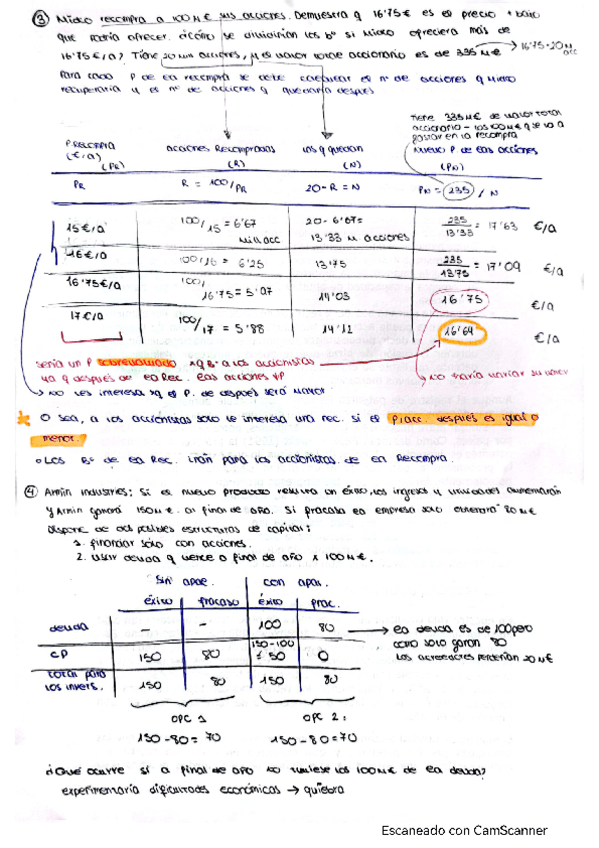 ③ Mideo recompra a 100M€ sus acciones. Demuestra q 16'75€ es el precio + bajo
que podría ofrecer. ¿cómo se dividirían los bº si Mideo ofreciera más de
16'75€/a? Tiene 20 mill acciones, y el valor total accionario es de 335 M€ → 16'75·20M acc
Para cada P de la recompra se debe calcular el nº de acciones q Mideo
recuperaría y el nº de acciones q quedaría después
Tiene 335M€ de valor total
accionario - los 100M€ que va a
gastar en la recompra
Nuevo P de las acciones
P RECOMPRA (€/a) (PR)
acciones Recompradas (R)
las q quedan (N)
(PN)
PR
R = 100/PR
20-R = N
PN = 235 / N
15€/a
100/15 = 6'67 mill acc
20-6'67= 13'33 M acciones
235/13'33 = 17'63 €/a
16€/a
100/16 = 6'25
13'75
235/13'75 = 17'09 €/a
16'75€/a
100/16'75 = 5'97
14'03
16'75 €/a
17€/a
100/17 = 5'88
14'12
16'64 €/a
sería un P sobrevalorado xq B a los accionistas
ya q después de la Rec. las acciones ↓P
→ no haría variar su valor
→ no les interesa xq el P. de después será mayor
* O sea, a los accionistas solo le interesa una rec. si el P/acc. después es igual o
menor.
• Los Bº de la Rec. irán para los accionistas de la Recompra.
④ Armin Industries: Si el nuevo producto resulta un éxito, los ingresos y utilidades aumentarán
y Armin ganará 150M€ al final de año. Si fracasa la empresa solo obtendrá 80M€
dispone de dos posibles estructuras de capital:
1. financiar sólo con acciones.
2. usar deuda q vence a final de año x 100M€.
sin apae. con apal.
éxito fracaso éxito frac.
deuda - - 100 80 → la deuda es de 100 pero
como solo ganan 80
los acreedores perderían 20M€
CP 150 80 150-100 = 50 0
total para los invers. 150 80 150 80
OPC 1 OPC 2:
150-80= 70 150-80=70
¿Qué ocurre si a final de año no tuviese los 100M€ de la deuda?
experimentaría dificultades económicas → quiebra
Escaneado con CamScanner